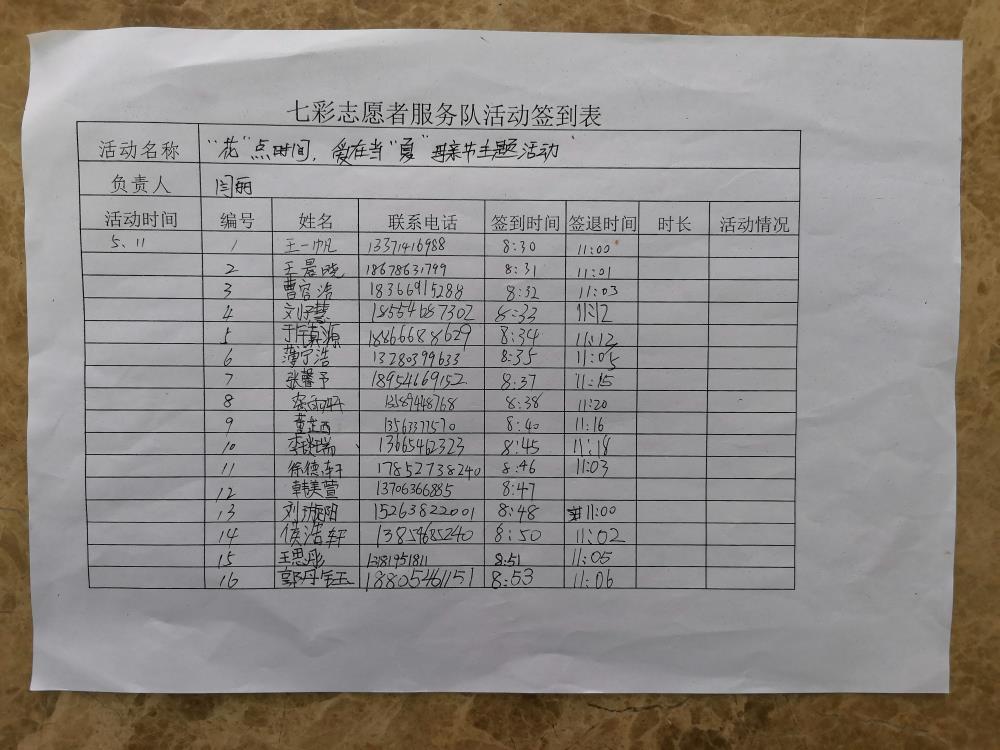 七彩志愿者服务队活动签到表
活动名称 "花"点时间，爱在当"夏"母亲节主题活动
负责人 闫丽
活动时间 编号 姓名 联系电话 签到时间 签退时间 时长 活动情况
5、11 1 王一帆 13371416988 8:30 11:00
2 王晨晓 18678631799 8:31 11:01
3 曹官浩 18366915288 8:32 11:03
4 刘子慧 18554687302 8:33 11:12
5 18866688629 8:34 11:12
6 薄宁浩 13280399633 8:35 11:05
7 张馨予 18954669152 8:37 11:15
8 13589448768 8:38 11:20
9 8:40 11:16
10 13665462323 8:45 11:18
11 徐德轩 17852738240 8:46 11:03
12 韩美萱 13706366885 8:47
13 刘漩阳 15263822001 8:48 11:00
14 侯浩轩 13854685240 8:50 11:02
15 王思彤 13181951811 8:51 11:05
16 郭丹钰玉 18805461151 8:53 11:06